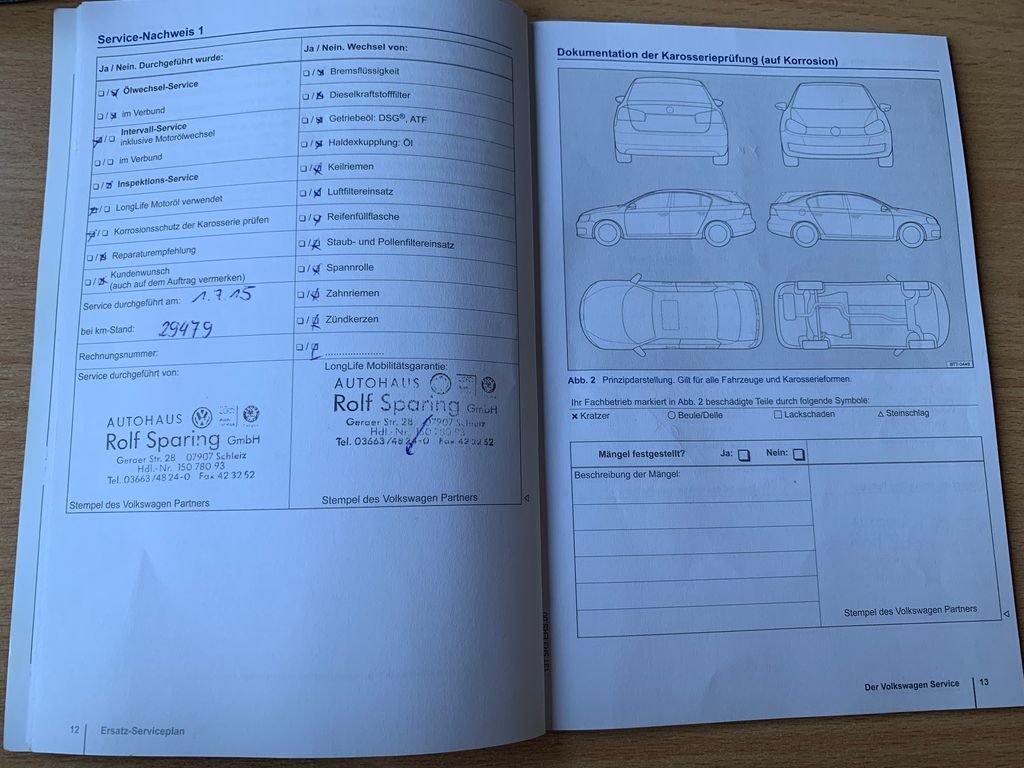 Service-Nachweis 1
Ja / Nein. Durchgeführt wurde:
Ölwechsel-Service
im Verbund
Intervall-Service
inklusive Motorölwechsel
im Verbund
Inspektions-Service
LongLife Motoröl verwendet
Korrosionsschutz der Karosserie prüfen
Reparaturempfehlung
Kundenwunsch
(auch auf dem Auftrag vermerken)
Service durchgeführt am: 1.7.15
bei km-Stand: 29479
Rechnungsnummer:
Service durchgeführt von:
AUTOHAUS
Rolf Sparing GmbH
Geraer Str. 28 07907 Schleiz
Hdl.-Nr. 150 780 93
Tel. 03663/48 24-0 Fax 42 32 52
Stempel des Volkswagen Partners
Ja / Nein. Wechsel von:
Bremsflüssigkeit
Dieselkraftstofffilter
Getriebeöl: DSG®, ATF
Haldexkupplung: Öl
Keilriemen
Luftfiltereinsatz
Reifenfüllflasche
Staub- und Pollenfiltereinsatz
Spannrolle
Zahnriemen
Zündkerzen
....................
LongLife Mobilitätsgarantie:
AUTOHAUS
Rolf Sparing GmbH
Geraer Str. 28 07907 Schleiz
Hdl.-Nr. 150 780 93
Tel. 03663/48 24-0 Fax 42 32 52
Stempel des Volkswagen Partners
12 Ersatz-Serviceplan
Dokumentation der Karosserieprüfung (auf Korrosion)
Abb. 2 Prinzipdarstellung. Gilt für alle Fahrzeuge und Karosserieformen.
Ihr Fachbetrieb markiert in Abb. 2 beschädigte Teile durch folgende Symbole:
× Kratzer ○ Beule/Delle □ Lackschaden △ Steinschlag
Mängel festgestellt? Ja: Nein:
Beschreibung der Mängel:
Stempel des Volkswagen Partners
Der Volkswagen Service 13